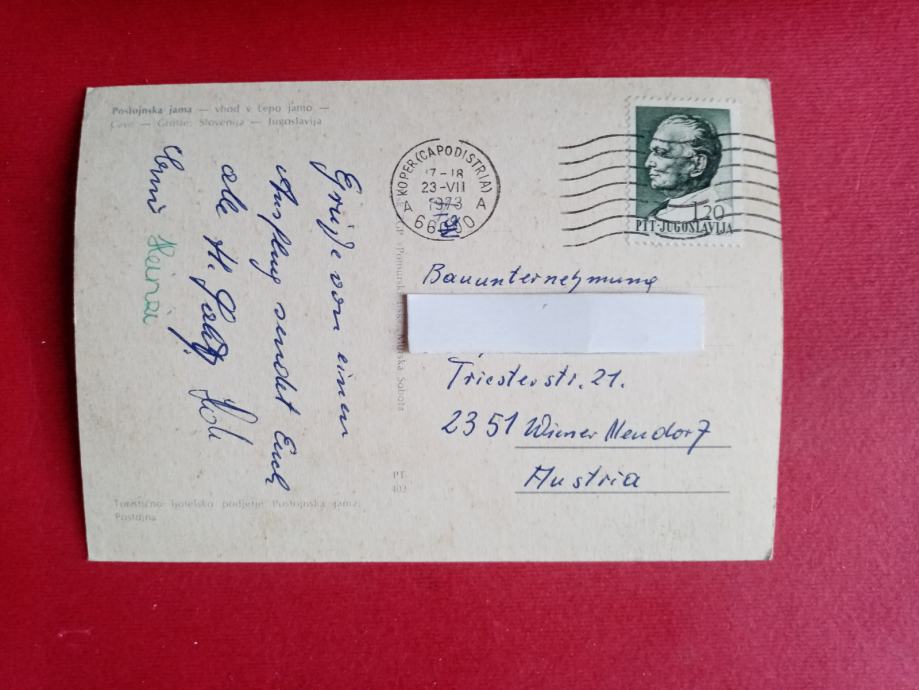 Postojnska jama — vhod v Lepo jamo —
Cave — Grotte: Slovenija — Jugoslavija
Grüße von einem
Ausflug sendet Euch
Heinzi
KOPER (CAPODISTRIA)
17-18
23-VII
1973
A A
66000
1,20
PTT-JUGOSLAVIJA
Bauunternehmung
Triesterstr. 21.
2351 Wiener Neudorf
Austria
ČGP Pomurski tisk Murska Sobota
PT
402
Turistično hotelsko podjetje Postojnska jama,
Postojna